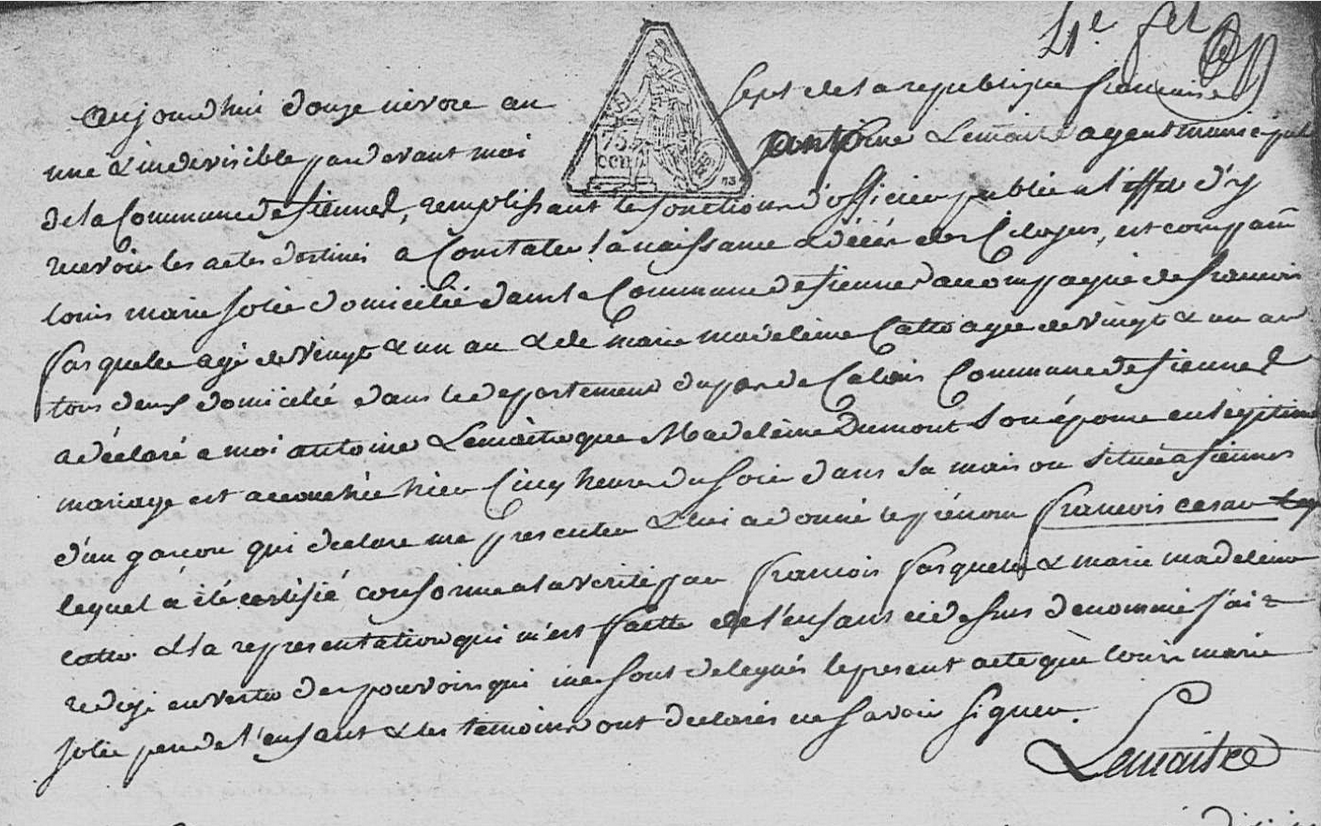 4e fet
aujourdhui douze nivose an sept de la republique francaise
une & indivisible pardevant moi antoine Lemaitre agent municipal
de la Commune de fiennes, remplissant les fonctions d'officier public a l'effet d'y
75
cen
recevoir les actes destinés a Constater la naissance & décés des Citoyens, est comparu
louis marie jolie domicilié dans la Commune de fiennes accompagné de francois
pasquelle agé de vingt & un an & de marie madeleine Catto agee de vingt & un an
tous deux domicilié dans le departement du pas de Calais Commune de fiennes
a déclaré a moi antoine Lemaitre que Madeleine Dumont son épouse en legitime
mariage est accouchée hier Cinq heure du soir dans sa maison située a fiennes
d'un garcon qui declare me presenter & lui a donné le prénom francois cesar
lequel a été certifié conforme a la verité par francois pasquelle & marie madeleine
catto & la representation qui m'est faitte de l'enfant ci dessus denommé j'ai
redigé en vertu des pouvoirs qui me sont delegués le present acte que louis marie
jolie pere de l'enfant & les temoins ont declarés ne savoir signer.
Lemaitre